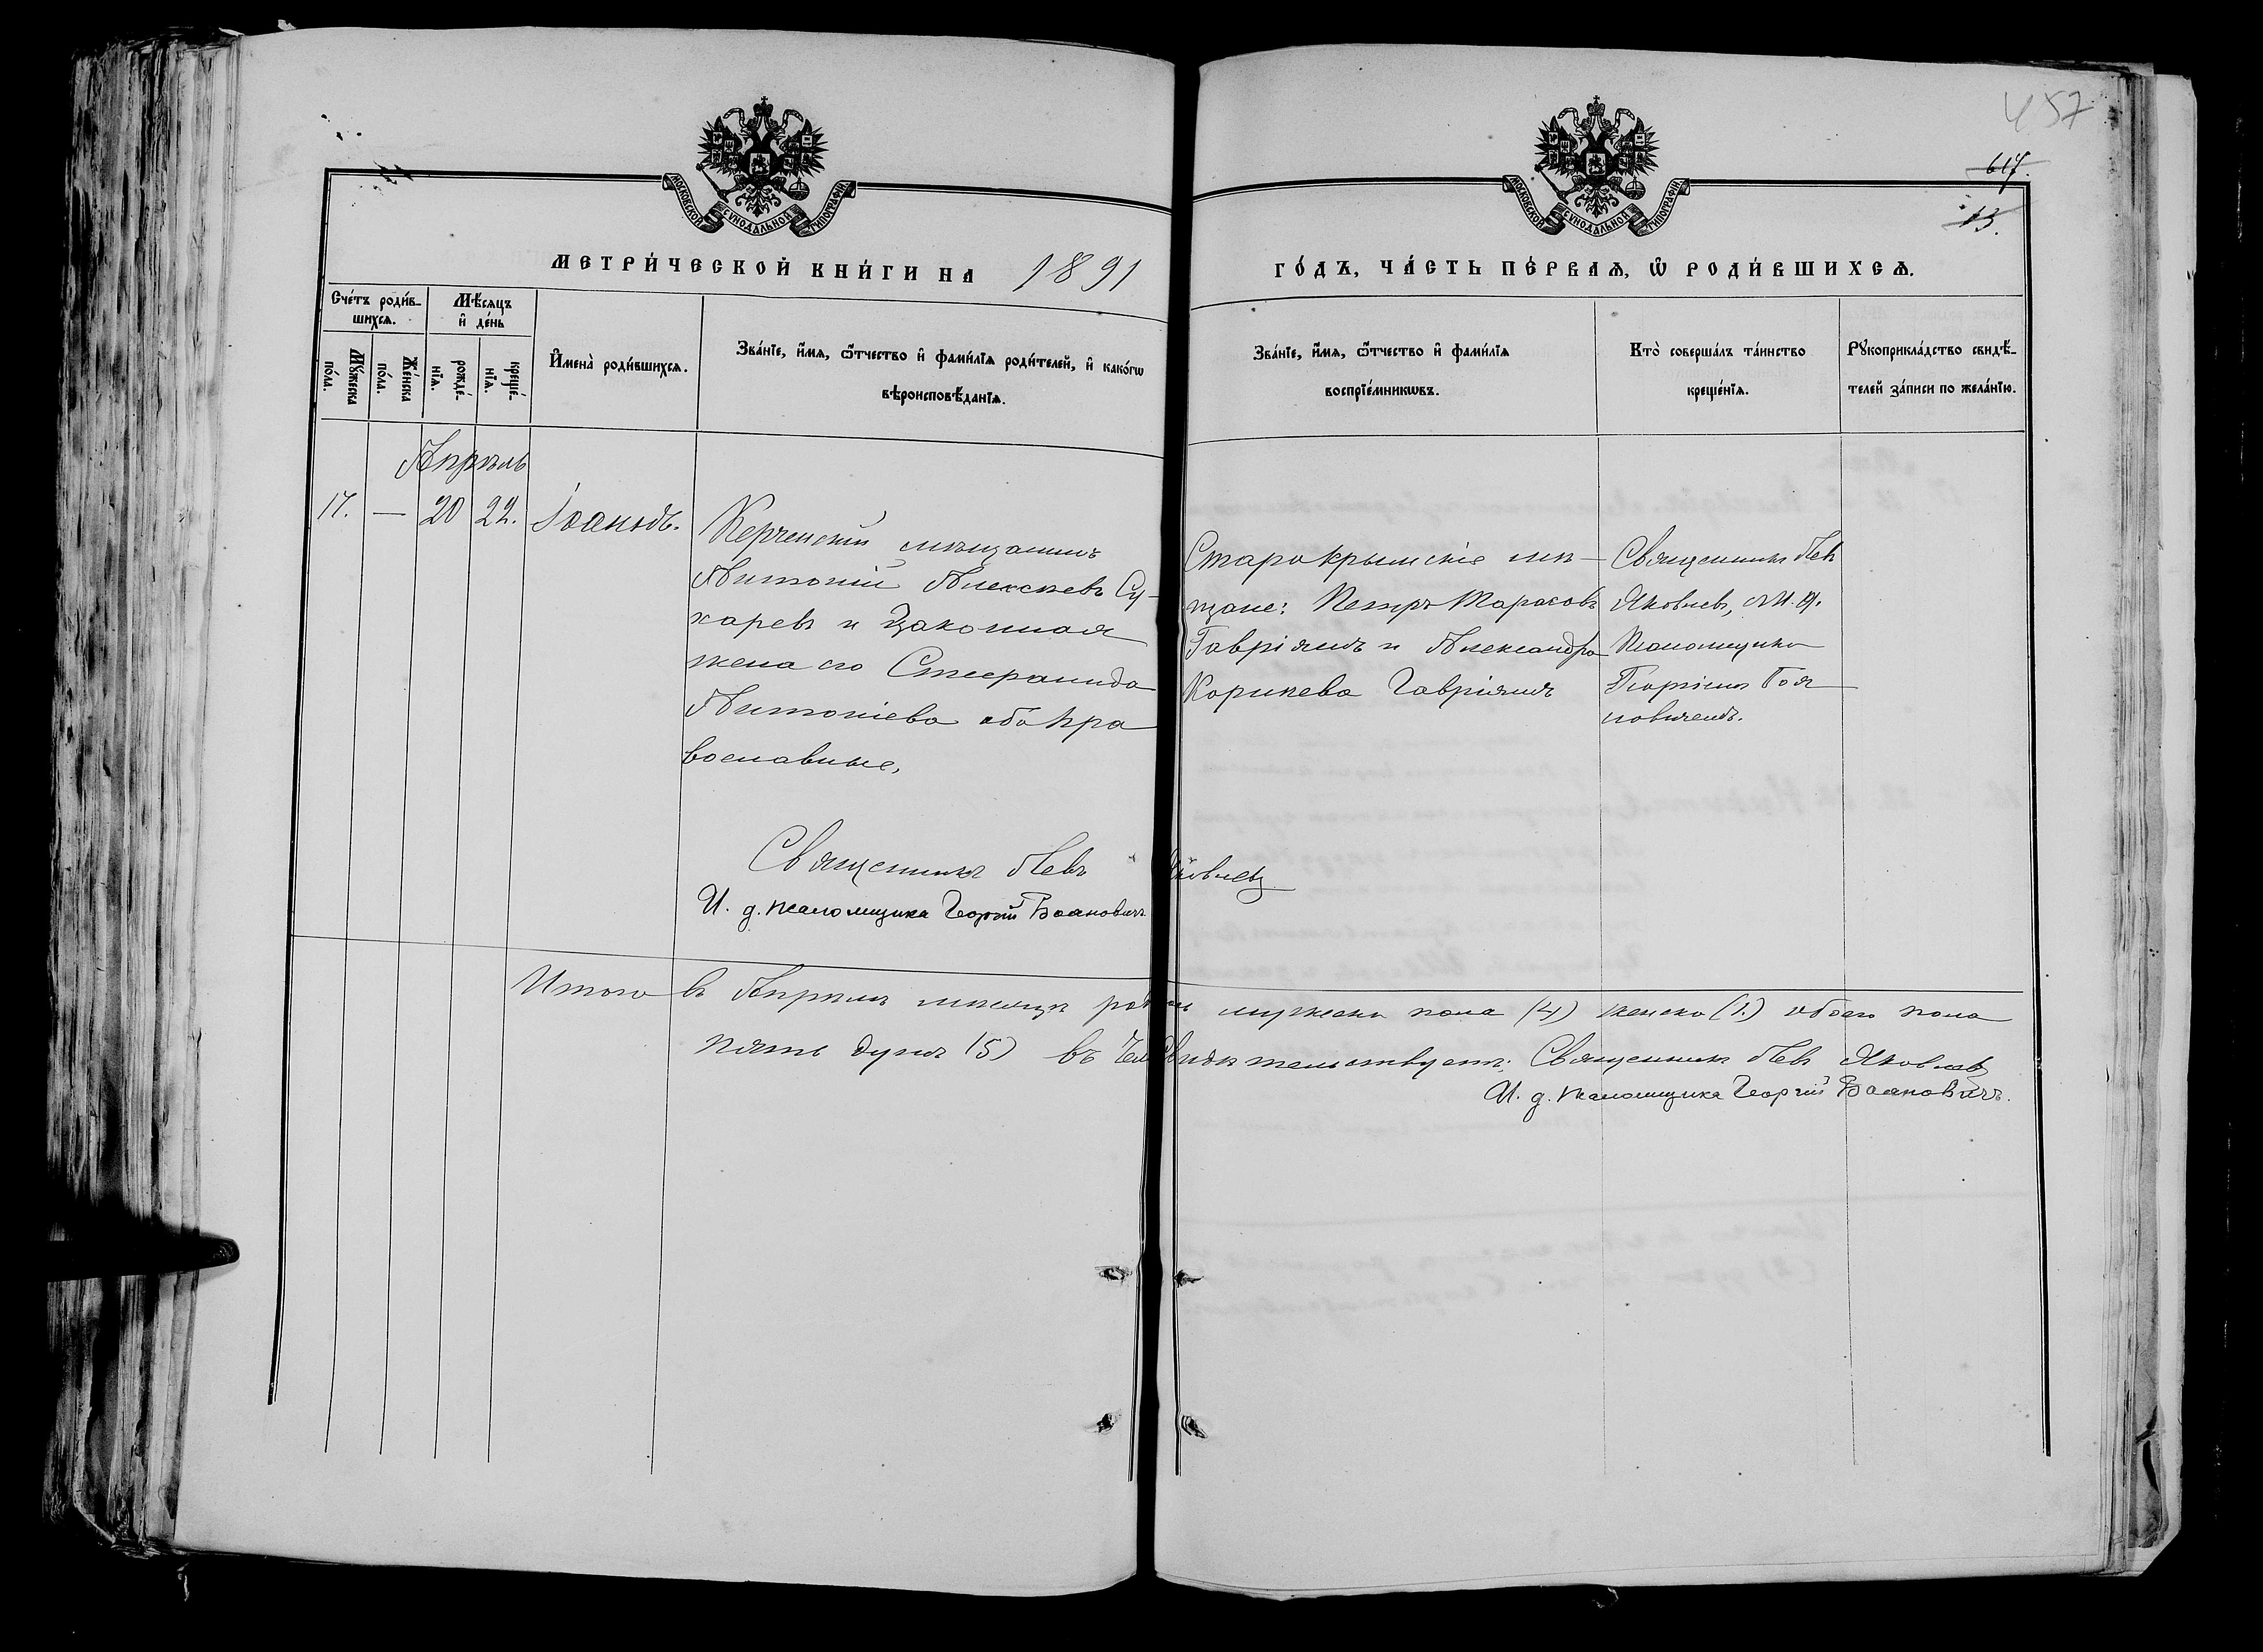 457
617.
13.
МОСКОВСКОЙ СѴНОДАЛЬНОЙ ТИПОГРАФІИ
МОСКОВСКОЙ СѴНОДАЛЬНОЙ ТИПОГРАФІИ
МЕТРИ́ЧЕСКОЙ КНИ́ГИ НА 1891
ГО́ДЪ, ЧА́СТЬ ПЕ́РВАѦ, Ѡ҆ РОДИ́ВШИХСѦ.
Сче́тъ роди́в-
шихсѧ.
Мꙋжеска
по́ла.
Же́нска
по́ла.
Мѣ́сѧцъ
и҆ де́нь
рожде́-
нїѧ.
креще́-
нїѧ.
И҆мена̀ роди́вшихсѧ.
Зва́нїе, и҆́мѧ, ѻ҆́тчество и҆ фами́лїѧ роди́телей, и҆ како́гѡ
вѣроисповѣ́данїѧ.
Зва́нїе, и҆́мѧ, ѻ҆́тчество и҆ фами́лїѧ
воспрїе́мникѡвъ.
Кто̀ соверша́лъ та́инство
креще́нїѧ.
Рꙋкоприкла́дство свидѣ́-
телей за́писи по жела́нїю.
Апрѣль
17. — 20 22. Іоаннъ.
Керченскій мѣщанинъ
Антоній Алексѣевъ Су-
харевъ и законная
жена его Стефанида
Антоніева оба пра
вославные,
Старокрымскіе мѣ-
щане: Петръ Тарасовъ
Гавріямъ и Александра
Корнѣева Гавріямъ
Священникъ Левъ
Яковлевъ, съ И. д.
Псаломщика
Георгіемъ Боя
новичемъ.
Священникъ Левъ Яковлевъ
И. д. псаломщика Георгій Бояновичъ
Итого въ Апрѣлѣ мѣсяцѣ родил мужеска пола (4) женска (1.) обоего пола
пять душъ (5) въ чемъ свидѣтельствуетъ: Священникъ Левъ Яковлевъ
И. д. псаломщика Георгій Бояновичъ.